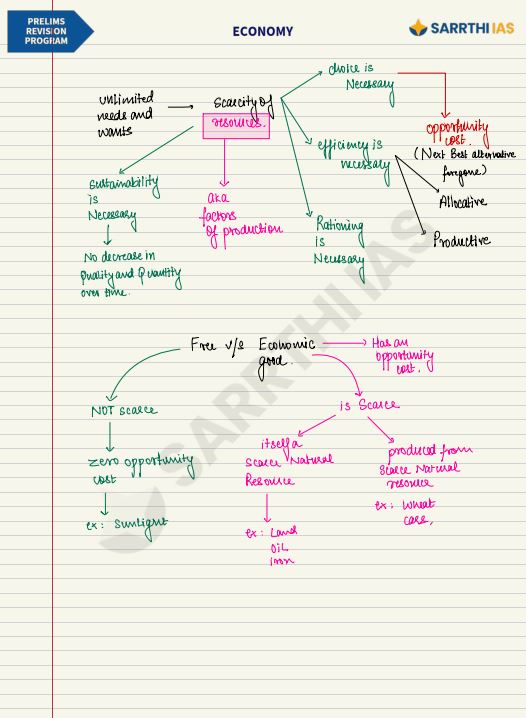 PRELIMS
REVISION
PROGRAM
ECONOMY
SARRTHI IAS
unlimited
needs and
wants
Scarcity of
resources.
choice is
Necessary
opportunity
cost.
(Next Best alternative
forgone)
efficiency is
necessary
Allocative
Productive
Rationing
is
Necessary
Sustainability
is
Necessary
No decrease in
Quality and Quantity
over time.
aka
factors
of production
Free v/s Economic
good.
Has an
opportunity
cost.
NOT scarce
zero opportunity
cost
ex: Sunlight
is Scarce
itself a
Scarce Natural
Resource
ex: Land
Oil
Iron
produced from
Scarce Natural
resource
ex: Wheat
cars,
SARRTHI IAS